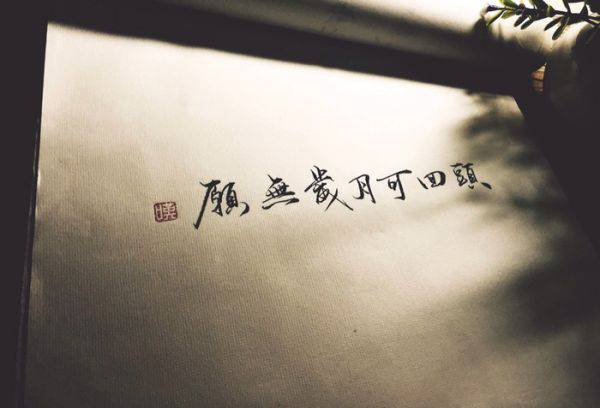 願無歲月可回頭